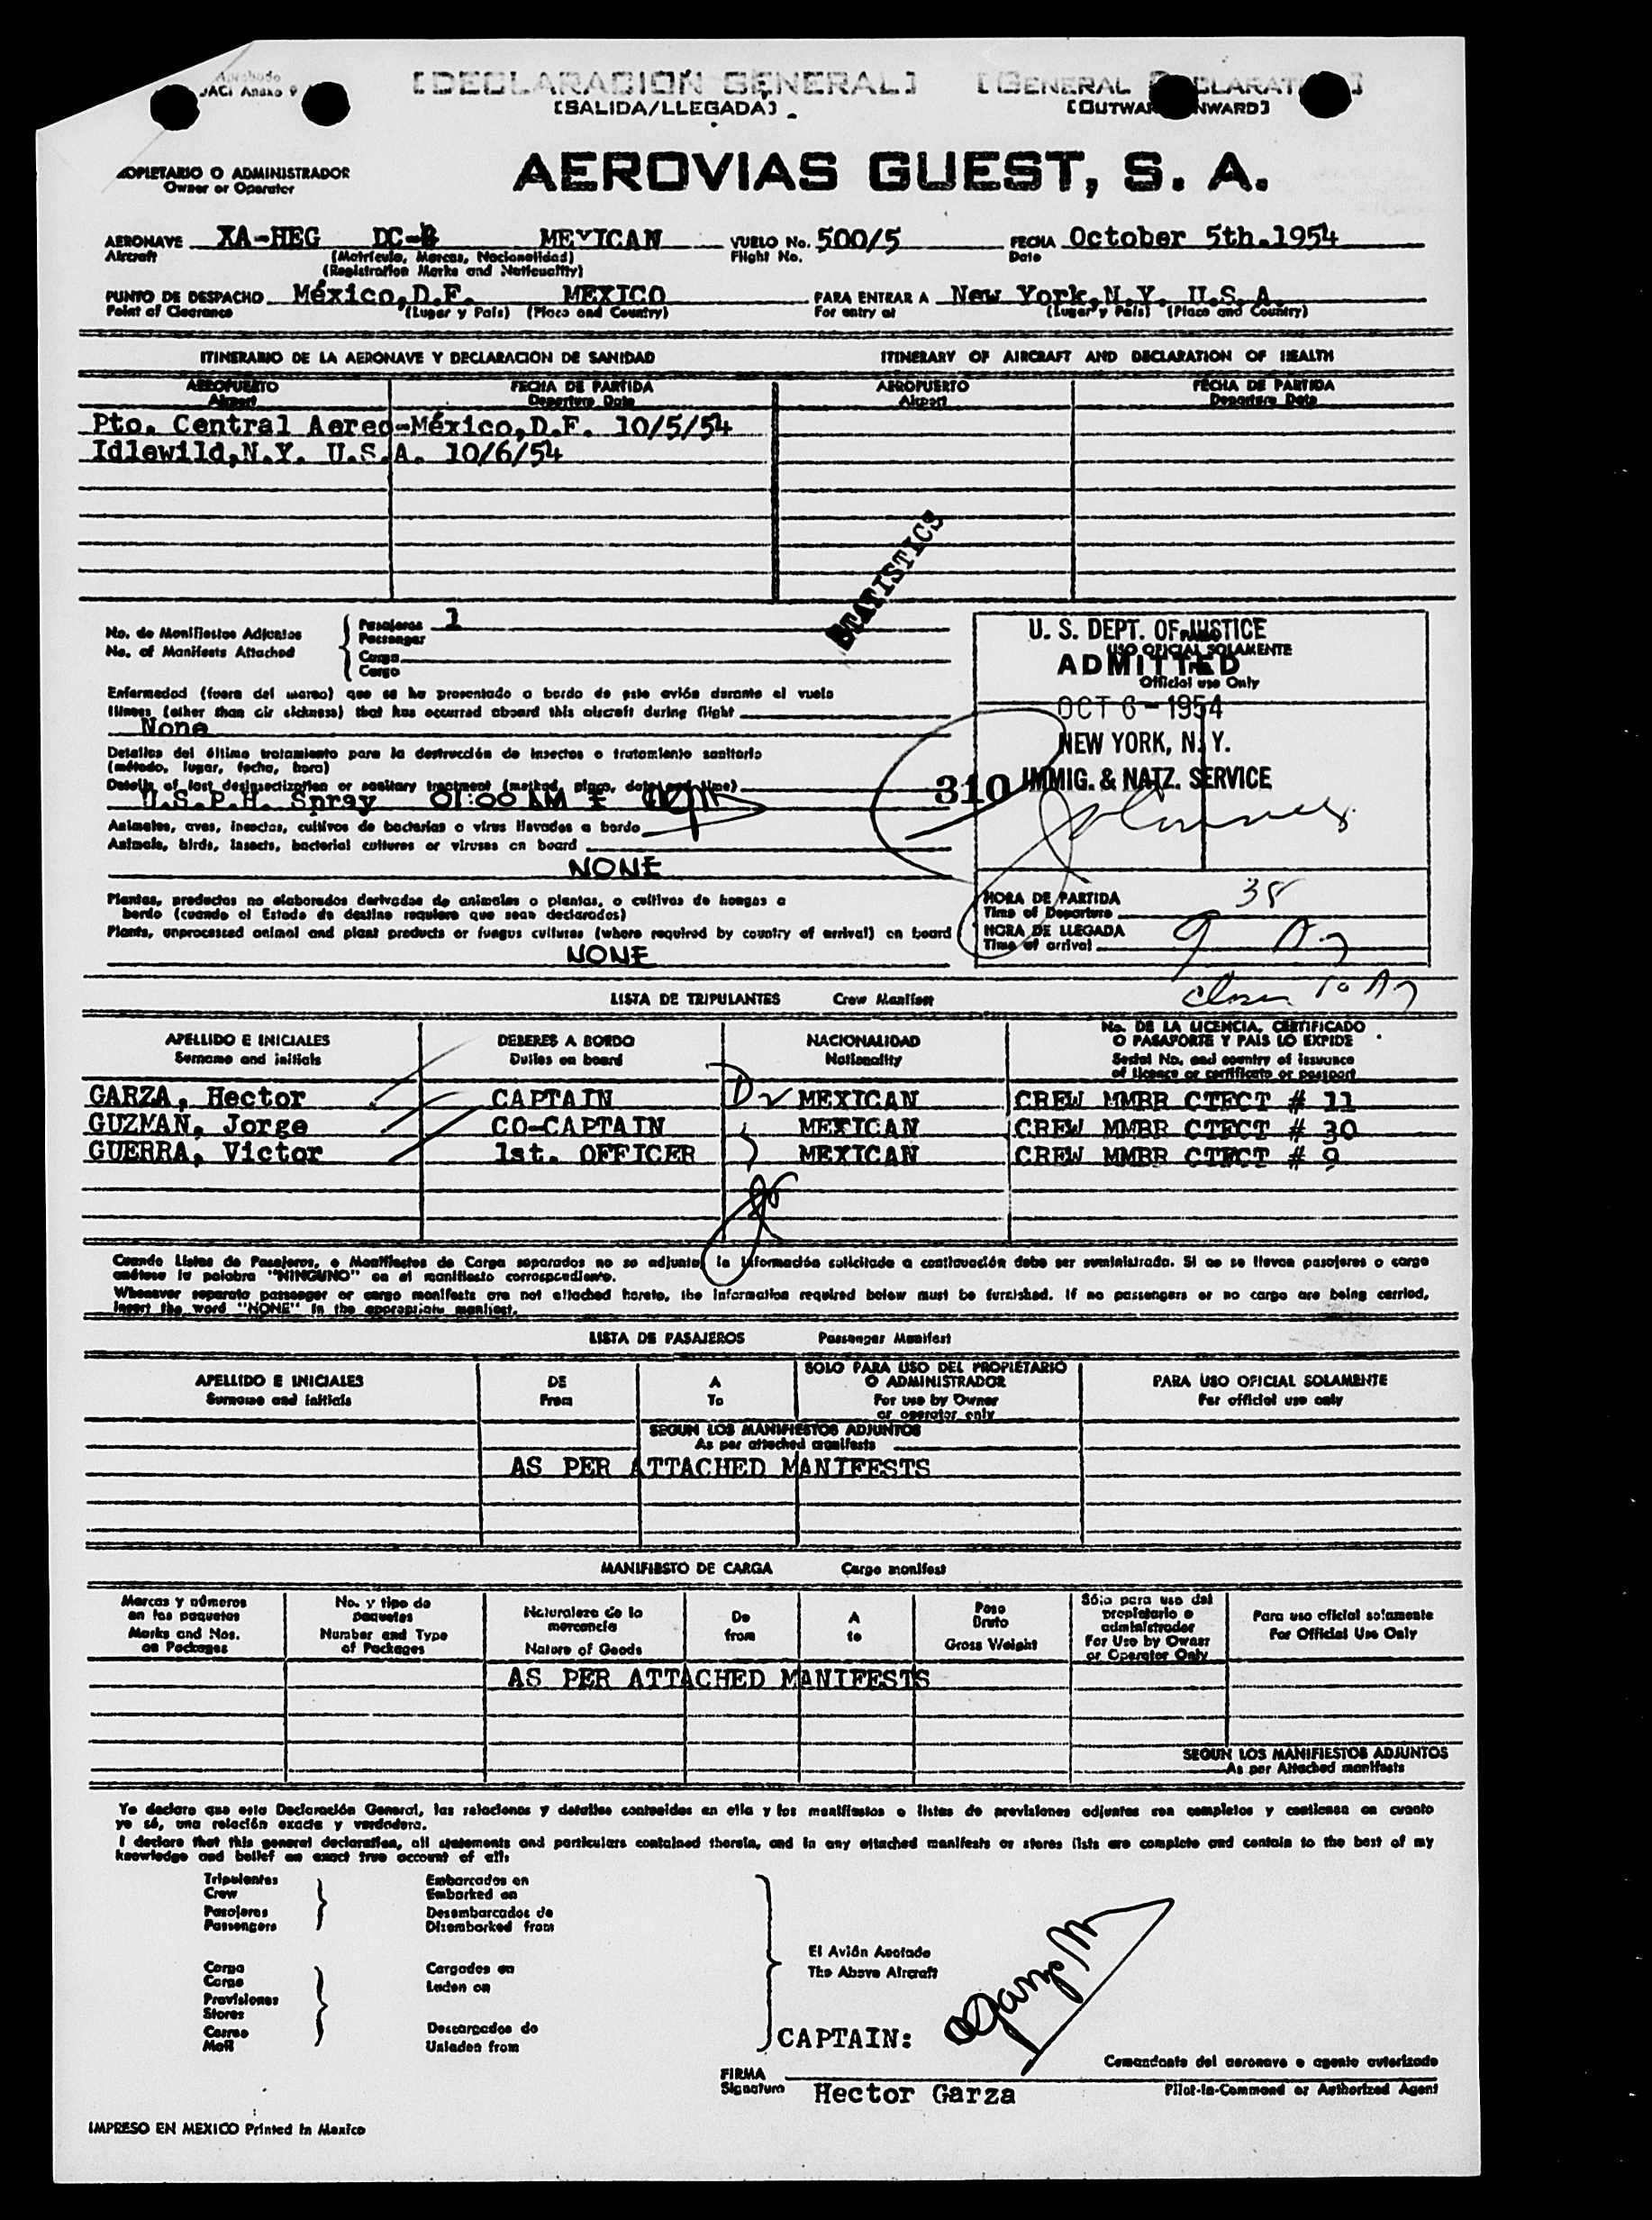 Aprobado
OACI Anexo 9
[DECLARACION GENERAL] [GENERAL DECLARAT ]
[SALIDA/LLEGADA] [OUTWAR NWARD]
OPIETARIO O ADMINISTRADOR
Owner or Operator
AEROVIAS GUEST, S. A.
AERONAVE XA-HEG DC- MEXICAN VUELO No. 500/5 FECHA October 5th.1954
Aircraft (Matrícula, Marcas, Nacionalidad) Flight No. Date
(Registration Marks and Nationality)
PUNTO DE DESPACHO México,D.F. MEXICO PARA ENTRAR A New York,N.Y. U.S.A.
Point of Clearance (Lugar y País) (Place and Country) For entry at (Lugar y País) (Place and Country)
ITINERARIO DE LA AERONAVE Y DECLARACION DE SANIDAD ITINERARY OF AIRCRAFT AND DECLARATION OF HEALTH
AEROPUERTO FECHA DE PARTIDA AEROPUERTO FECHA DE PARTIDA
Airport Departure Date Airport Departure Date
Pto. Central Aereo-México,D.F. 10/5/54
Idlewild,N.Y. U.S.A. 10/6/54
STATISTICS
No. de Manifiestos Adjuntos
No. of Manifests Attached
Pasajeros 1
Passenger
Carga
Cargo
U. S. DEPT. OF JUSTICE
USO OFICIAL SOLAMENTE
ADMITTED
Official use Only
OCT 6 - 1954
NEW YORK, N. Y.
310 IMMIG. & NATZ. SERVICE
Enfermedad (fuera del mareo) que se ha presentado a bordo de este avión durante el vuelo
Illness (other than air sickness) that has occurred aboard this aircraft during flight
None
Detalles del último tratamiento para la destrucción de insectos o tratamiento sanitario
(método, lugar, fecha, hora)
Details of last desinsectization or sanitary treatment (method, place, date and time)
U.S.P.H. Spray 01:00 AM
Animales, aves, insectos, cultivos de bacterias o virus llevados a bordo
Animals, birds, insects, bacterial cultures or viruses on board
NONE
Plantas, productos no elaborados derivados de animales o plantas, o cultivos de hongos a
bordo (cuando el Estado de destino requiere que sean declarados)
Plants, unprocessed animal and plant products or fungus cultures (where required by country of arrival) on board
NONE
HORA DE PARTIDA 38
Time of Departure
HORA DE LLEGADA 9
Time of arrival
LISTA DE TRIPULANTES Crew Manifest
APELLIDO E INICIALES DEBERES A BORDO NACIONALIDAD No. DE LA LICENCIA, CERTIFICADO
O PASAPORTE Y PAIS LO EXPIDE
Surname and initials Duties on board Nationality Serial No. and country of issuance
of licence or certificate or passport
GARZA, Hector CAPTAIN MEXICAN CREW MMBR CTFCT # 11
GUZMAN, Jorge CO-CAPTAIN MEXICAN CREW MMBR CTFCT # 30
GUERRA, Victor 1st. OFFICER MEXICAN CREW MMBR CTFCT # 9
Cuando Listas de Pasajeros, o Manifiestos de Carga separados no se adjuntan la información solicitada a continuación debe ser suministrada. Si no se llevan pasajeros o carga
anótese la palabra "NINGUNO" en el manifiesto correspondiente.
Whenever separate passenger or cargo manifests are not attached hereto, the information required below must be furnished. If no passengers or no cargo are being carried,
insert the word "NONE" in the appropriate manifest.
LISTA DE PASAJEROS Passenger Manifest
APELLIDO E INICIALES DE A SOLO PARA USO DEL PROPIETARIO
O ADMINISTRADOR PARA USO OFICIAL SOLAMENTE
Surname and initials From To For use by Owner
or operator only For official use only
SEGUN LOS MANIFIESTOS ADJUNTOS
As per attached manifests
AS PER ATTACHED MANIFESTS
MANIFIESTO DE CARGA Cargo manifest
Marcas y números
en los paquetes
Marks and Nos.
on Packages
No. y tipo de
paquetes
Number and Type
of Packages
Naturaleza de la
mercancía
Nature of Goods
De
from
A
to
Peso
Bruto
Gross Weight
Sólo para uso del
propietario o
administrador
For Use by Owner
or Operator Only
Para uso oficial solamente
For Official Use Only
AS PER ATTACHED MANIFESTS
SEGUN LOS MANIFIESTOS ADJUNTOS
As per Attached manifests
Yo declaro que esta Declaración General, las relaciones y detalles contenidos en ella y los manifiestos o listas de previsiones adjuntas son completos y contienen en cuanto
yo sé, una relación exacta y verdadera.
I declare that this general declaration, all statements and particulars contained therein, and in any attached manifests or stores lists are complete and contain to the best of my
knowledge and belief an exact true account of all:
Tripulantes Embarcados en
Crew Embarked on
Pasajeros Desembarcados de
Passengers Disembarked from
El Avión Anotado
The Above Aircraft
Carga Cargados en
Cargo Laden on
Provisiones
Stores
Correo Descargados de
Mail Unladen from
CAPTAIN:
FIRMA Comandante del aeronave o agente autorizado
Signature Hector Garza Pilot-in-Command or Authorized Agent
IMPRESO EN MEXICO Printed in Mexico